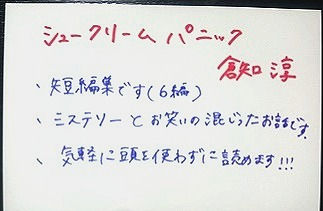 シュークリーム パニック
倉知 淳
、短編集です(6編)
、ミステリーとお笑いの混じったお話です.
、気軽に頭を使わずに読めます!!!